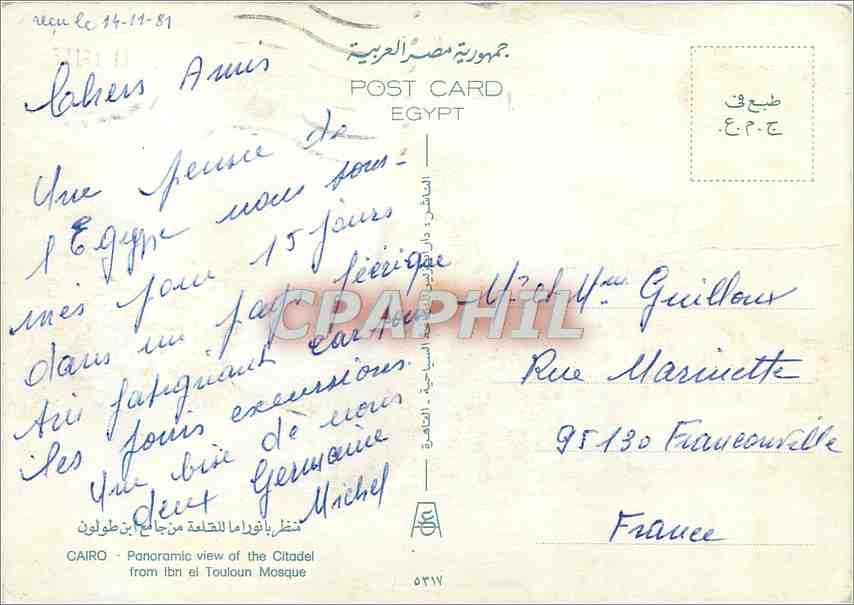 reçu le 14-11-81
Chers Amis
Une pensée de
l'Egypte nous som-
mes pour 15 jours
dans un pays féérique
très fatigant car tous
les jours excursions.
Une bise de nous
deux Germaine
Michel
جمهورية مصر العربية
POST CARD
EGYPT
طبع فى
ج.م.ع.
الناشر: دار
السياحية - القاهرة
CPAPHIL
Mr et Mme Guilloux
Rue Marinette
95130 Franconville
France
منظر بانوراما للقلعة من جامع ابن طولون
CAIRO - Panoramic view of the Citadel
from Ibn el Touloun Mosque
٥٣١٧